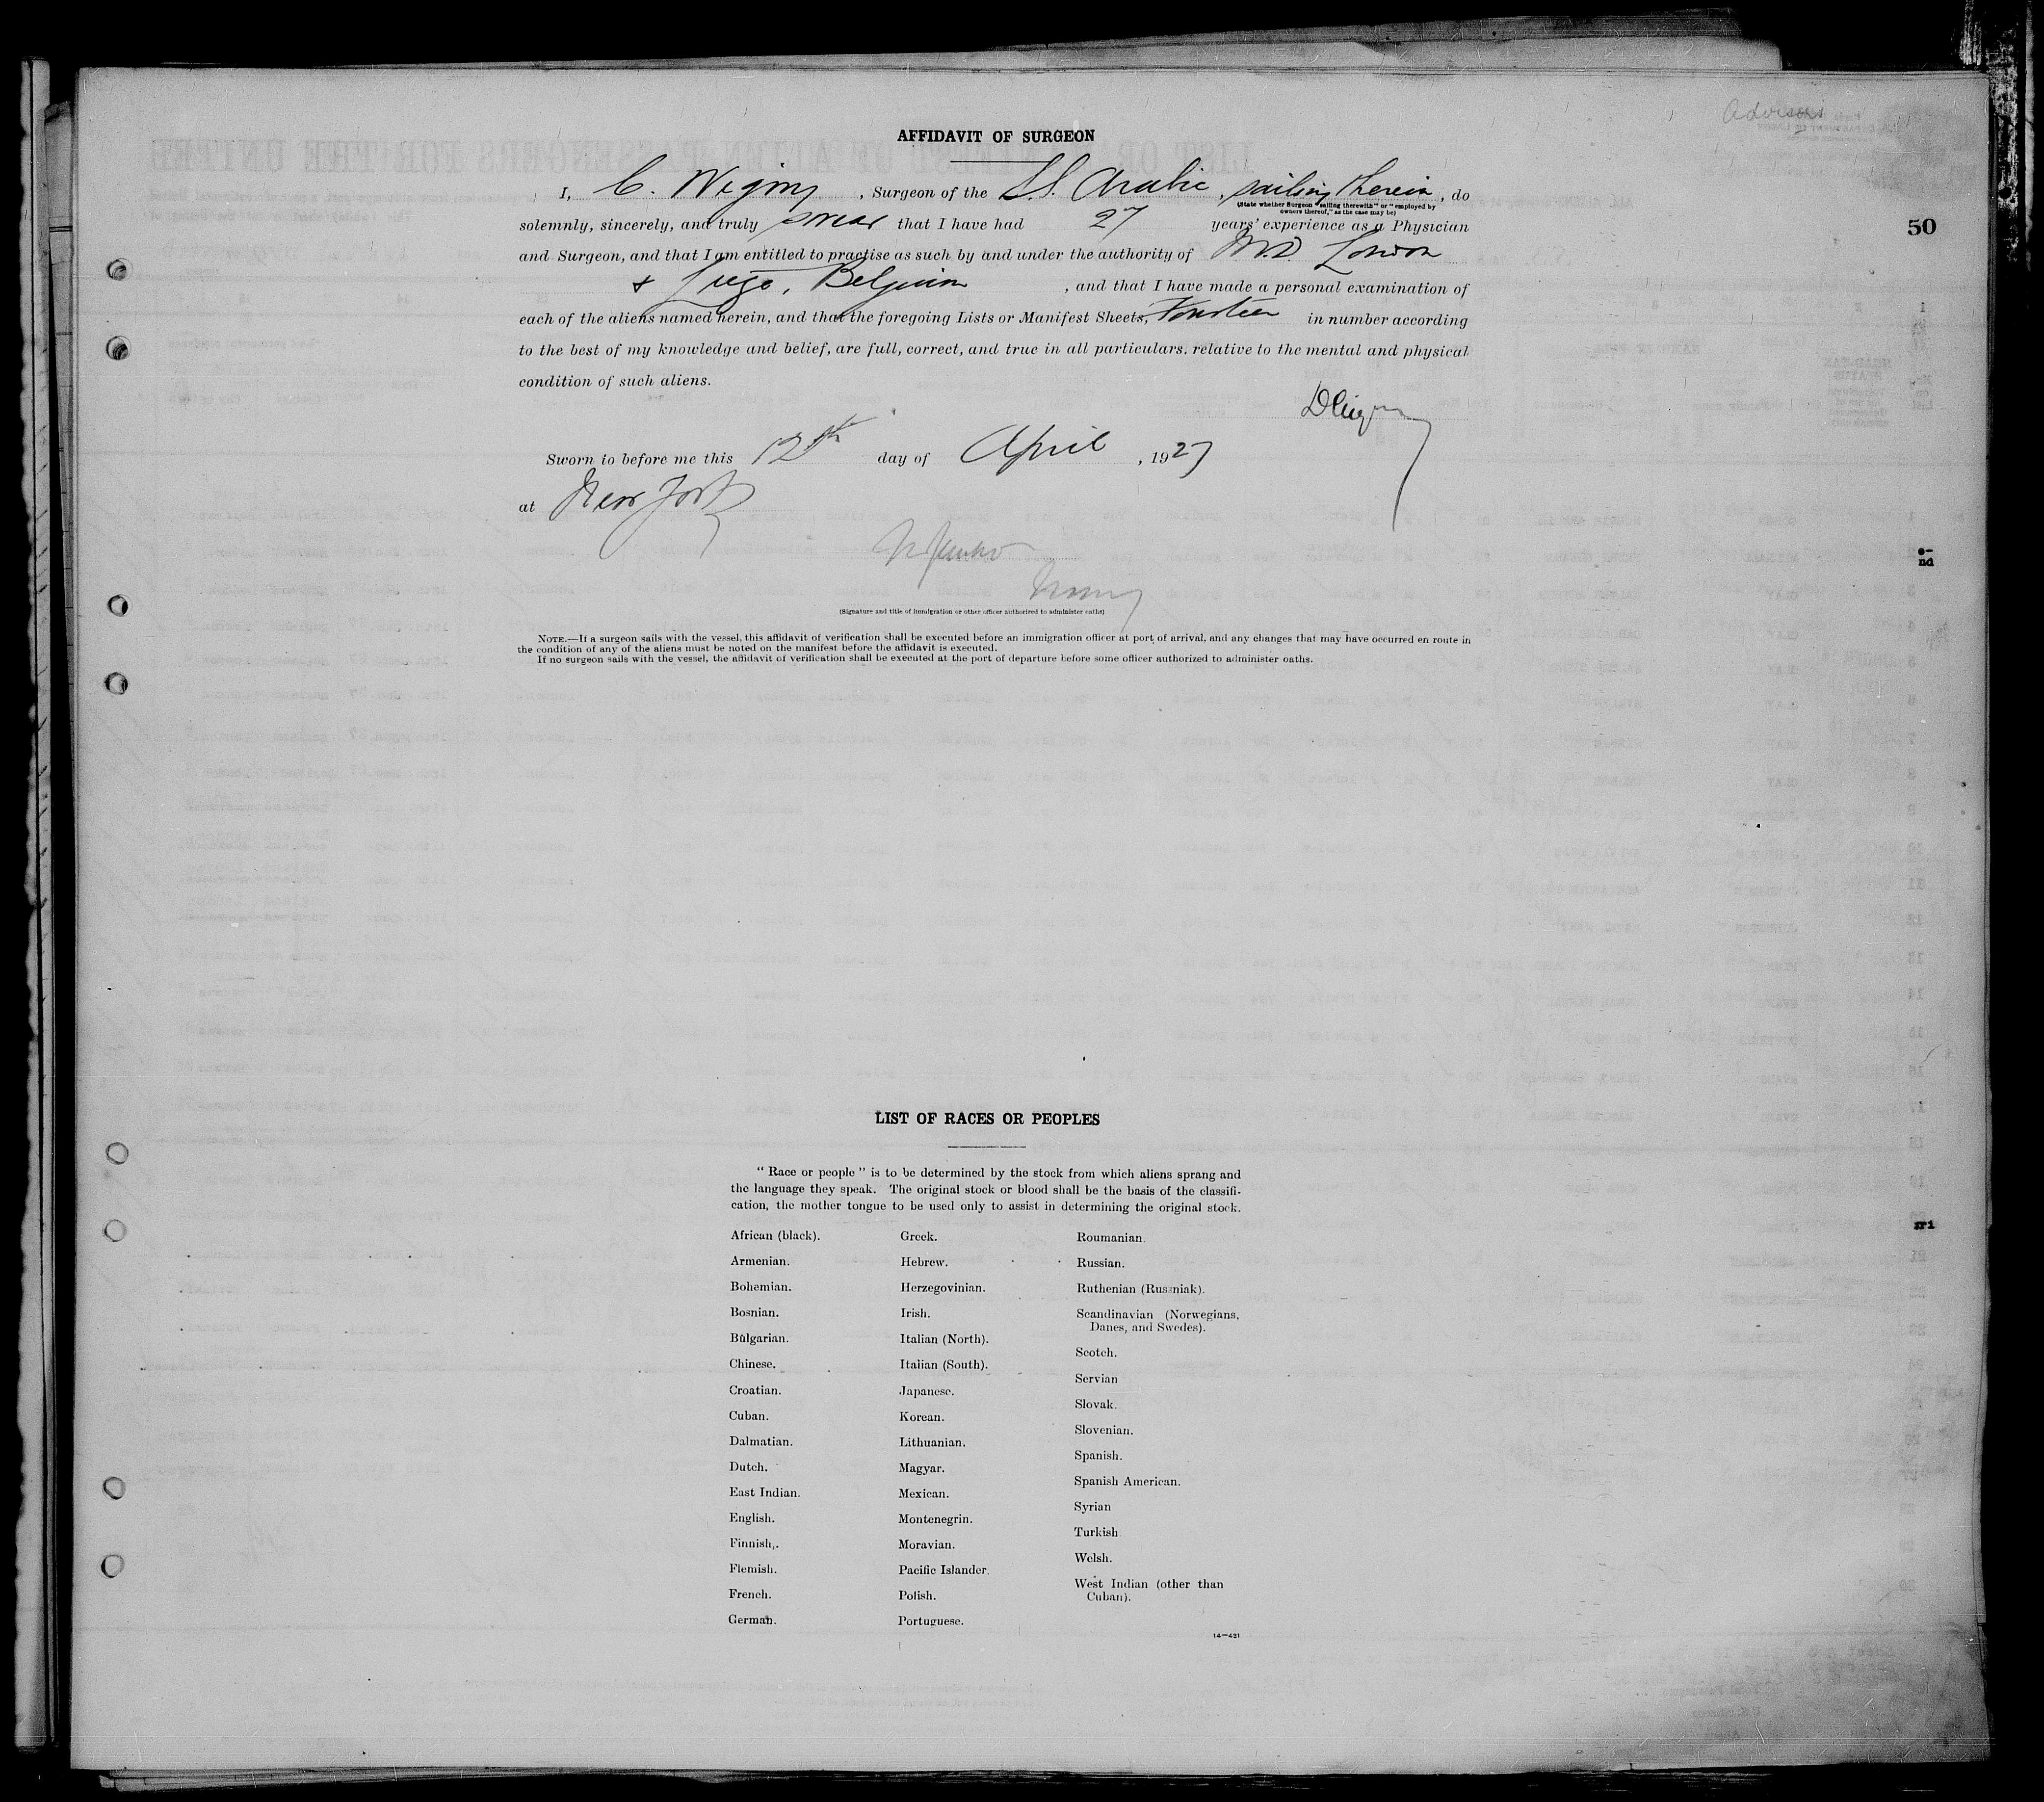 AFFIDAVIT OF SURGEON
I, C. , Surgeon of the S.S. Arabic, sailing therein, do
(State whether Surgeon "sailing therewith" or "employed by
owners thereof," as the case may be)
solemnly, sincerely, and truly swear that I have had 27 years' experience as a Physician
50
and Surgeon, and that I am entitled to practise as such by and under the authority of M.D. London
& Liege, Belgium, and that I have made a personal examination of
each of the aliens named herein, and that the foregoing Lists or Manifest Sheets, Fourteen in number according
to the best of my knowledge and belief, are full, correct, and true in all particulars, relative to the mental and physical
condition of such aliens.
Sworn to before me this 12th day of April, 1927
at New York
(Signature and title of immigration or other officer authorized to administer oaths)
NOTE.—If a surgeon sails with the vessel, this affidavit of verification shall be executed before an immigration officer at port of arrival, and any changes that may have occurred en route in
the condition of any of the aliens must be noted on the manifest before the affidavit is executed.
If no surgeon sails with the vessel, the affidavit of verification shall be executed at the port of departure before some officer authorized to administer oaths.
LIST OF RACES OR PEOPLES
"Race or people" is to be determined by the stock from which aliens sprang and
the language they speak. The original stock or blood shall be the basis of the classifi-
cation, the mother tongue to be used only to assist in determining the original stock.
African (black).
Armenian.
Bohemian.
Bosnian.
Bulgarian.
Chinese.
Croatian.
Cuban.
Dalmatian.
Dutch.
East Indian.
English.
Finnish.
Flemish.
French.
German.
Greek.
Hebrew.
Herzegovinian.
Irish.
Italian (North).
Italian (South).
Japanese.
Korean.
Lithuanian.
Magyar.
Mexican.
Montenegrin.
Moravian.
Pacific Islander.
Polish.
Portuguese.
Roumanian.
Russian.
Ruthenian (Russniak).
Scandinavian (Norwegians,
Danes, and Swedes).
Scotch.
Servian
Slovak.
Slovenian.
Spanish.
Spanish American.
Syrian
Turkish
Welsh.
West Indian (other than
Cuban).
14—421